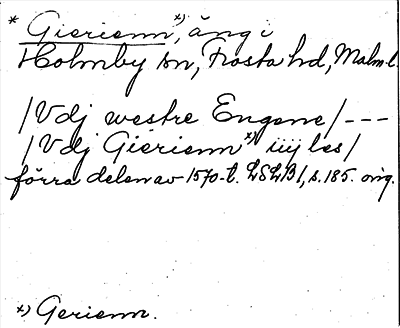 * Gierienn x), äng i
Holmby sn, Frosta hd, Malm l.
/Vdj westre Engene/---
/Vdj Gierienn x) iiij les/
förra delen av 1570-t. LSLB1, s. 185. orig.
x) Gerienn.